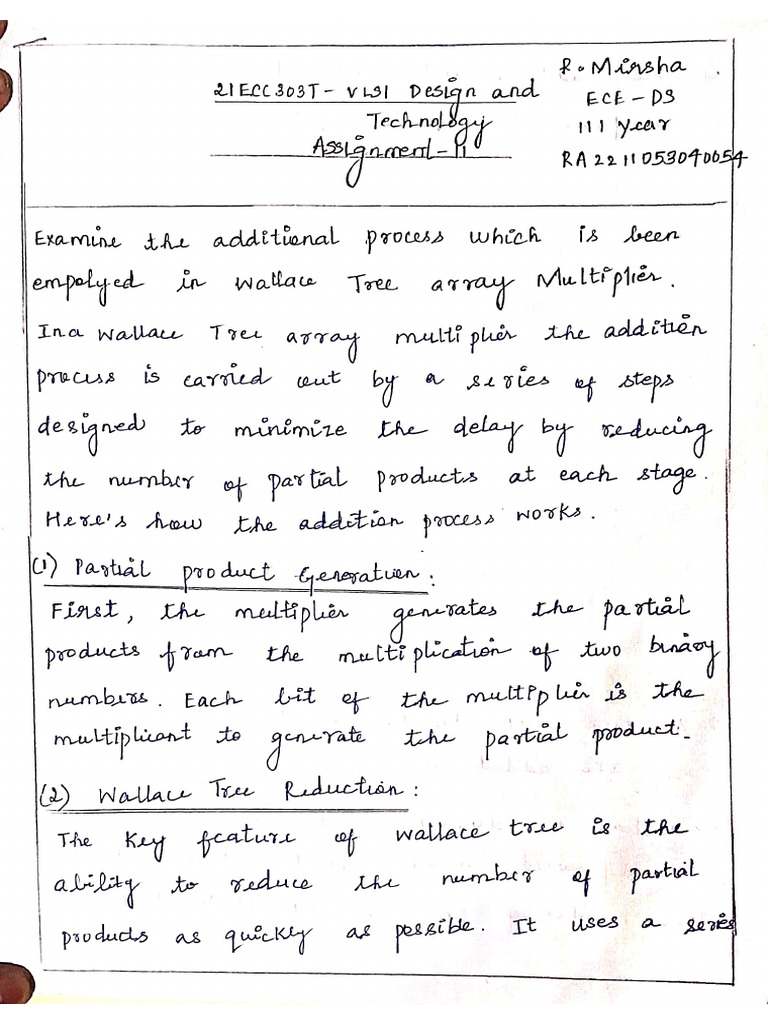 21ECC303T - VLSI Design and
Technology
Assignment - II
R. Mirsha
ECE - D3
III Year
RA2211053040054
Examine the additional process which is been
empolyed in Wallace Tree array Multiplier.
In a Wallace Tree array multiplier the addition
process is carried out by a series of steps
designed to minimize the delay by reducing
the number of partial products at each stage.
Here's how the addition process works.
(1) Partial product Generation:
First, the multiplier generates the partial
products from the multiplication of two binary
numbers. Each bit of the multiplier is the
multiplicant to generate the partial product.
(2) Wallace Tree Reduction:
The Key feature of wallace tree is the
ability to reduce the number of partial
products as quickly as possible. It uses a series